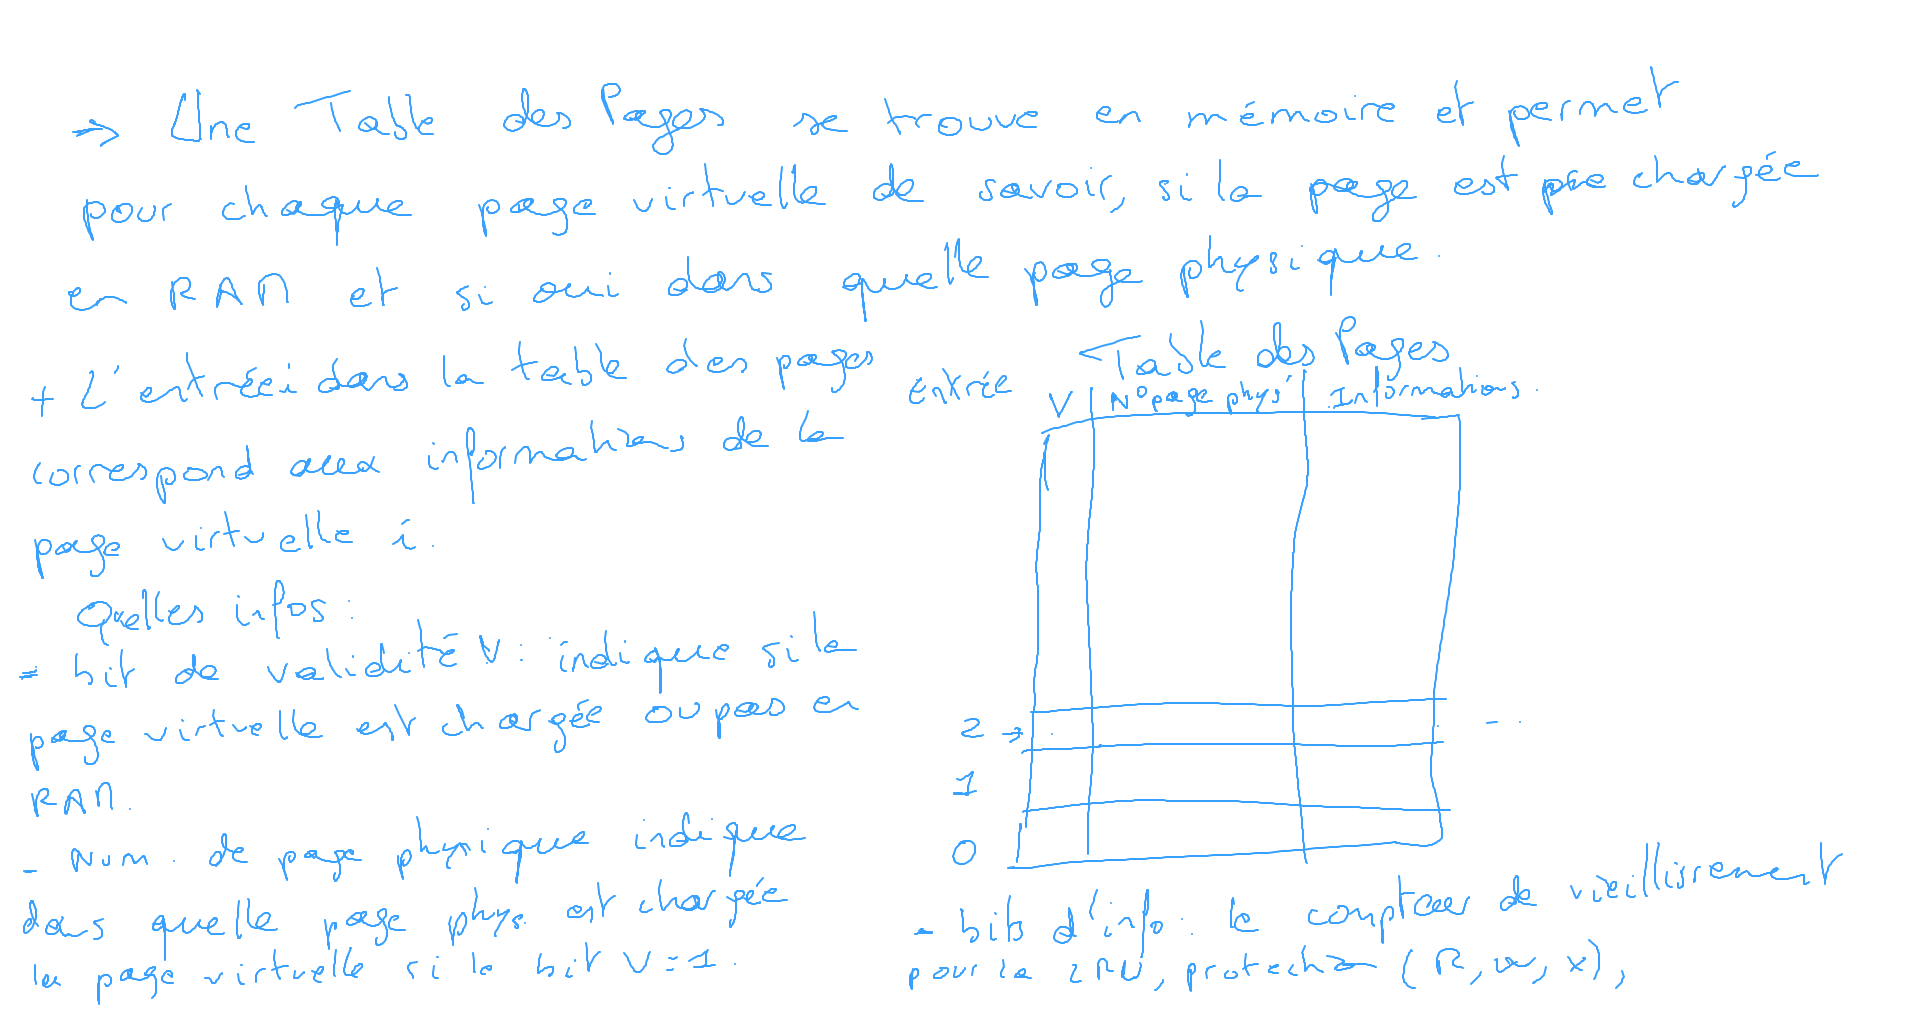 → Une Table des Pages se trouve en mémoire et permet
pour chaque page virtuelle de savoir, si la page est chargée
en RAM et si oui dans quelle page physique.
+ L'entrée i dans la table des pages
correspond aux informations de la
page virtuelle i.
Quelles infos :
- bit de validité V : indique si la
page virtuelle est chargée ou pas en
RAM.
- Num. de page physique indique
dans quelle page phys. est chargée
la page virtuelle si le bit V=1.
Table des Pages
Entrée V N° page phys Informations.
2 → . - ..
1
0
- bits d'info : le compteur de vieillissement
pour la LRU, protection (R, w, x),